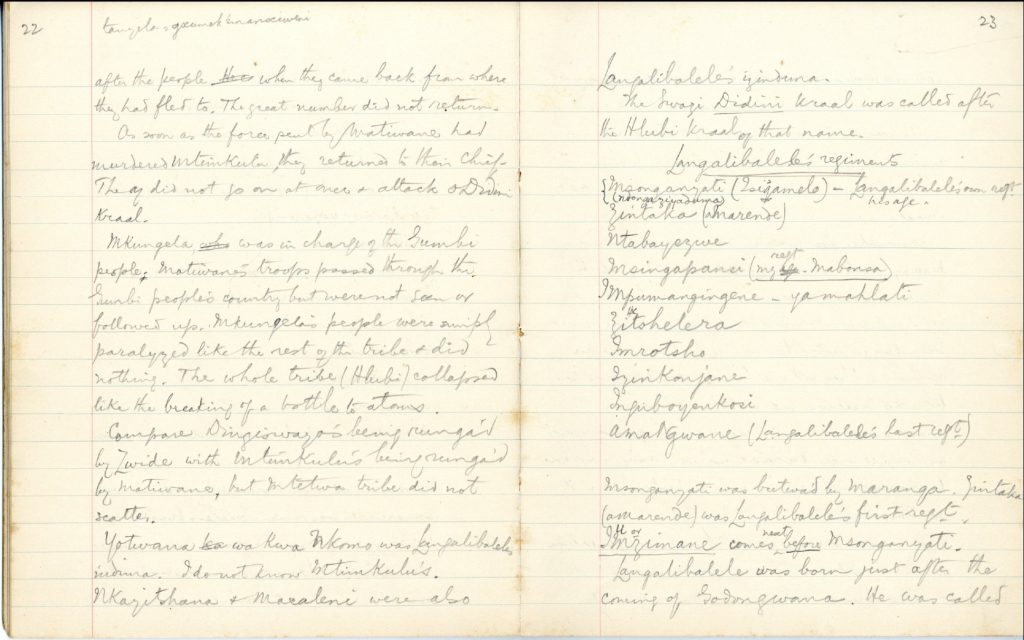 22
after the people when they came back from where
they had fled to. The great number did not return.
As soon as the force sent by Matiwane had
murdered Mtimkulu, they returned to their chief.
They did not go on at once & attack Didini
Kraal.
Mkungela was in charge of the Gumbi
people. Matiwane's troops passed through the
Gumbi people's country but were not seen or
followed up. Mkungela's people were simply
paralyzed like the rest of the tribe & did
nothing. The whole tribe (Hlubi) collapsed
like the breaking of a bottle to atoms.
Compare Dingiswayo's being runga'd
by Zwide with Mtimkulu's being runga'd
by Matiwane, but Mtetwa tribe did not
scatter.
Yotwana wa Kwa Nkomo was Langalibalele's
induna. I do not know Mtimkulu's.
Nkazitshana & Macaleni were also
23
Langalibalele's izinduna.
The Swazi Didini kraal was called after
the Hlubi kraal of that name.
Langalibalele's regiments
Msonganyati (Isizamelo) – Langalibalele's own regt
his age.
Zintaka (amarende)
Ntabayezwe
Msingapansi (my regt - Mabonsa)
Impumangingene – ya mahlati
Zitshelera
Imrotsho
Izinkonjane
Inguboyenkosi
AmaNgwane (Langalibalele's last regt)
Msonganyati was butwad by Maranga. Zintaka
(amarende) was Langalibalele's first regt.
comes next before Msonganyati.
Langalibalele was born just after the
coming of Godongwana. He was called